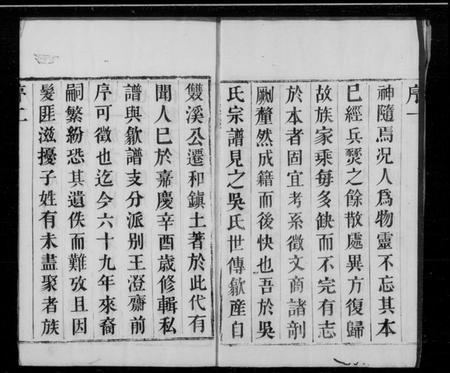 序一
神隨焉況人爲物靈不忘其本
已經兵燹之餘散處異方復歸
故族家乘每多缺而不完有志
於本者固宜考系徵文商諸剞
劂釐然成籍而後快也吾於吳
氏宗譜見之吳氏世傳歙產自
雙溪公遷和鎮土著於此代有
聞人已於嘉慶辛酉歲修輯私
譜與歙譜支分派別王澄齋前
序可徵也迄今六十九年來裔
嗣繁紛恐其遺佚而難攷且因
髮匪滋擾子姓有未盡聚者族
序二